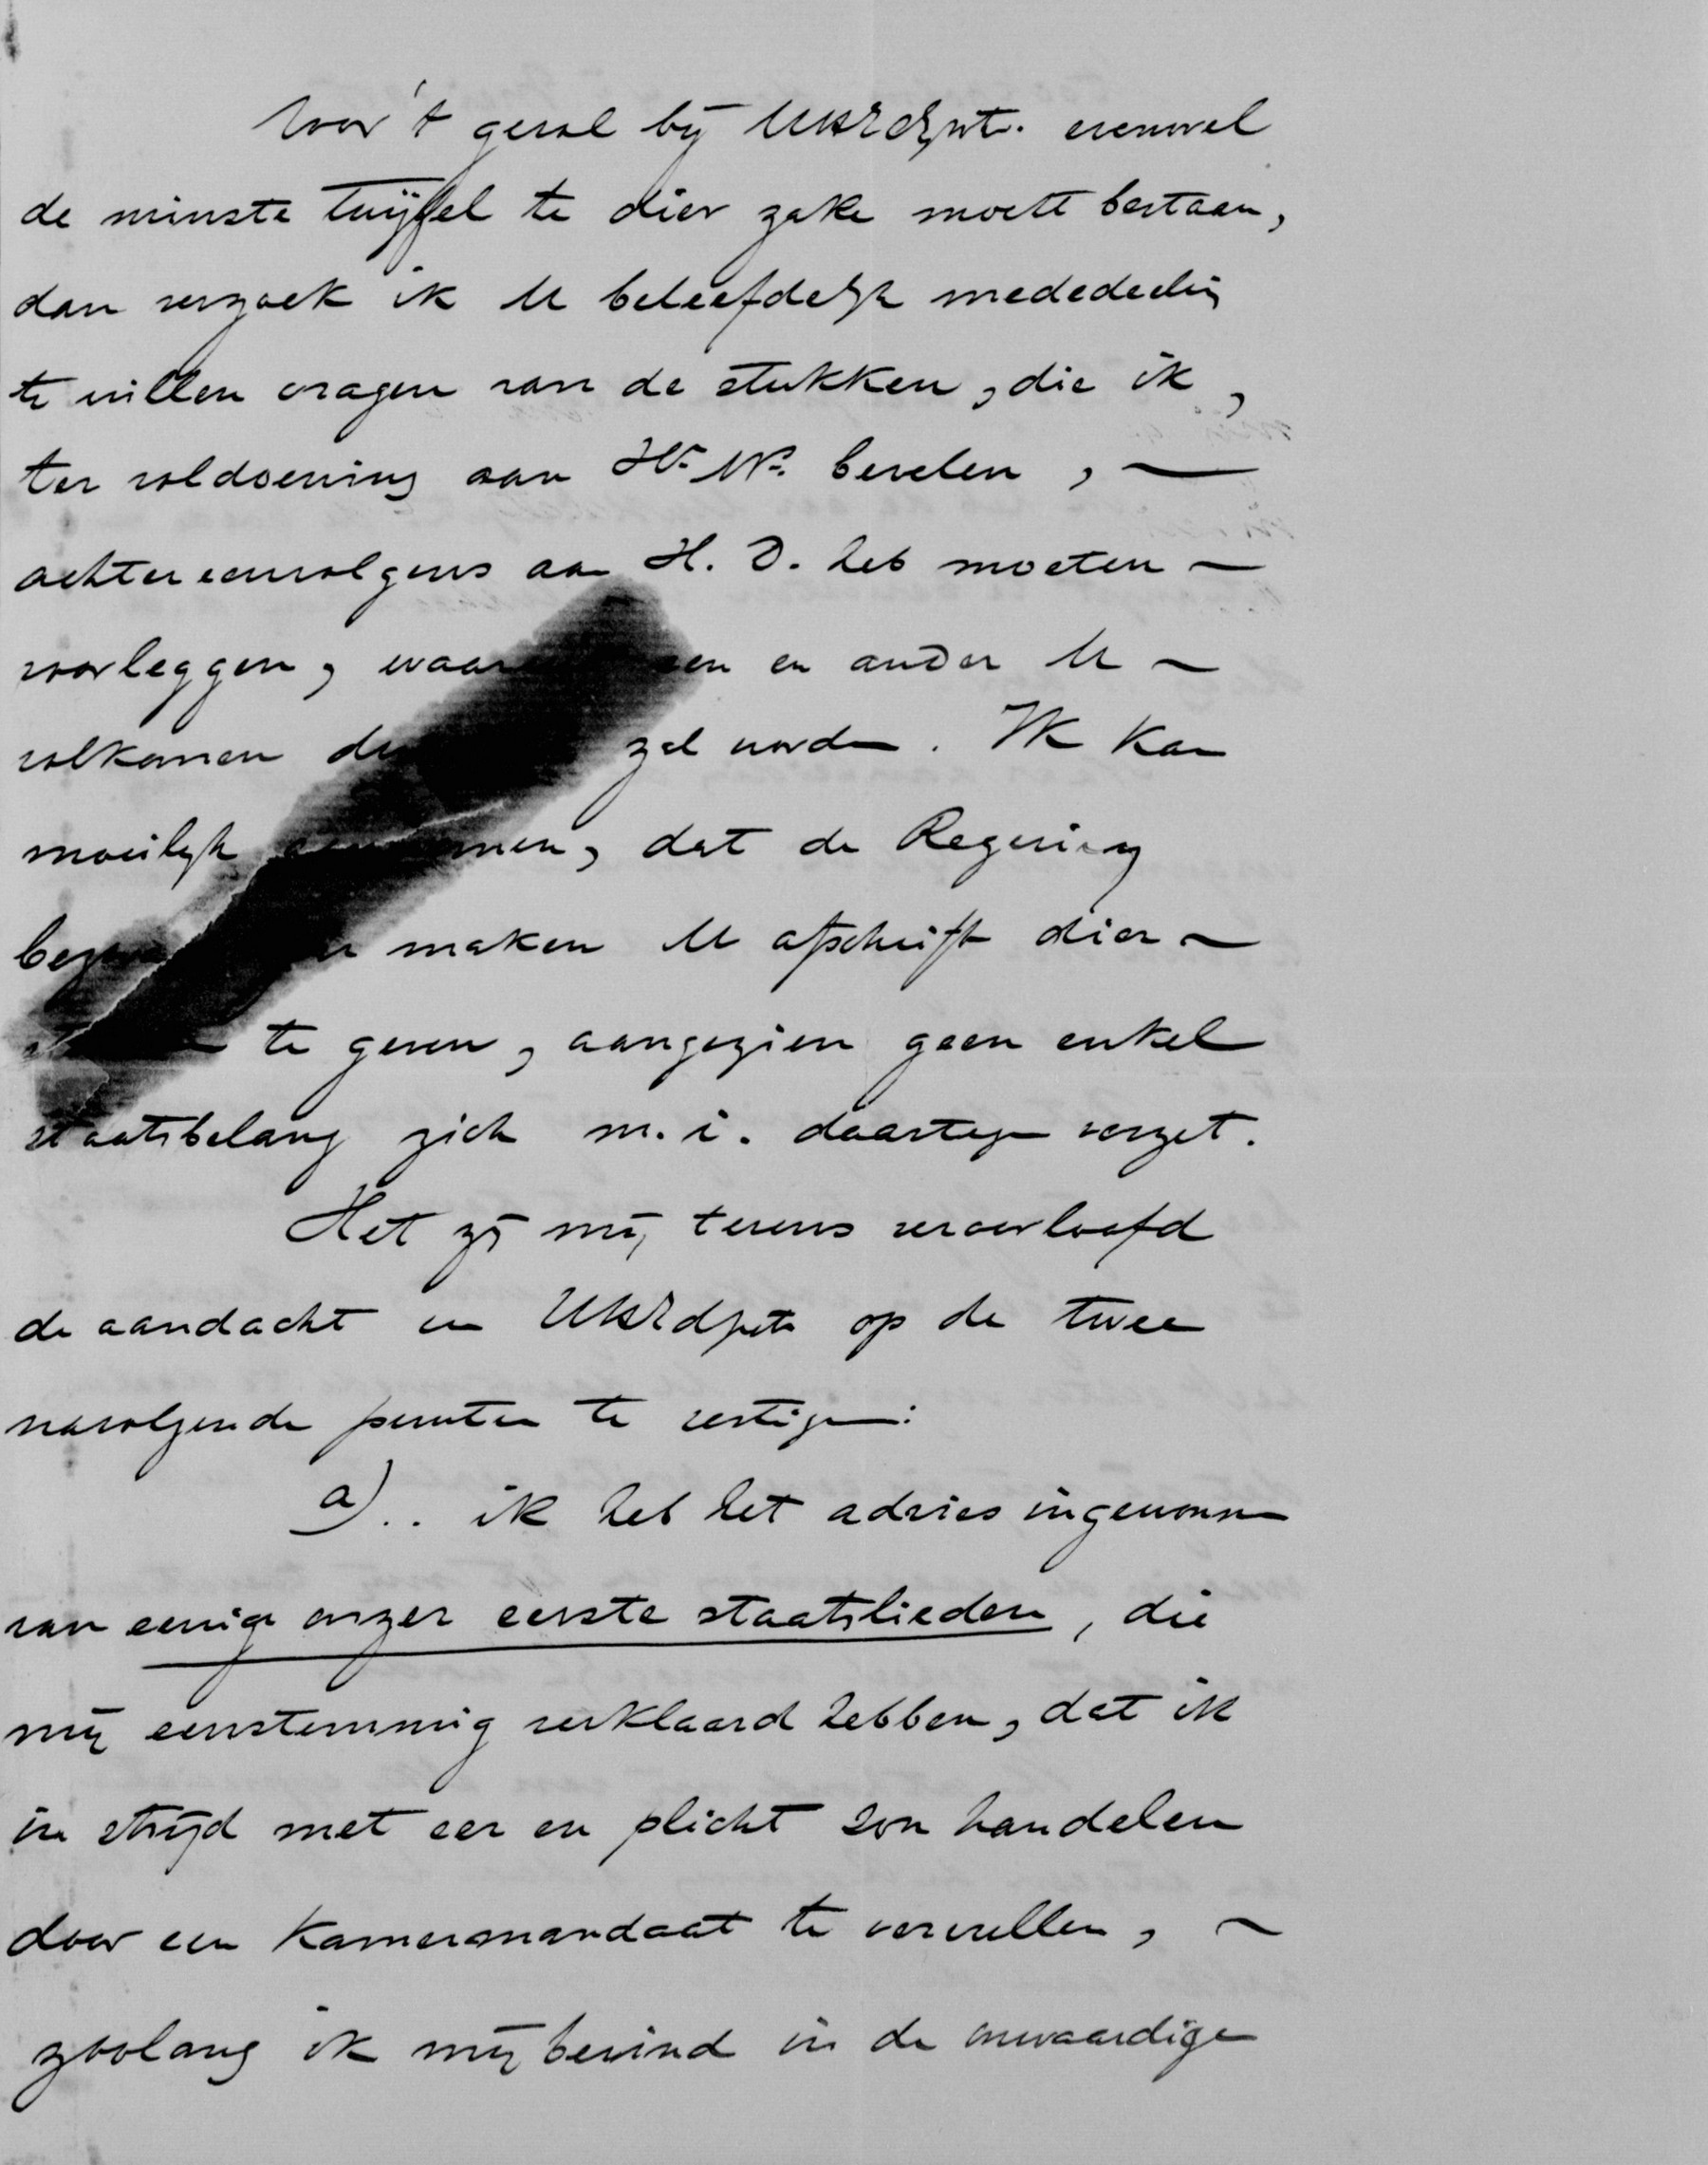 Voor 't geval bij UWEdgstr. evenwel
de minste twijfel te dier zake mocht bestaan,
dan verzoek ik U beleefdelijk mededeeling
te willen vragen van de stukken, die ik,
ter voldoening aan Hr. Ms. bevelen, ~
achtereenvolgens aan H. D. heb moeten ~
voorleggen, een en ander U ~
volkomen zal worden. Ik kan
moeilijk aannemen, dat de Regeering
maken U afschrift dier ~
te geven, aangezien geen enkel
staatsbelang zich m.i. daartegen verzet.
Het zij mij tevens veroorloofd
de aandacht van UWEdgstr op de twee
navolgende punten te vestigen:
a).. ik heb het advies ingewonnen
van eenige onzer eerste staatslieden, die
mij eenstemmig verklaard hebben, dat ik
in strijd met eer en plicht zou handelen
door een Kamermandaat te vervullen, ~
zoolang ik mij bevind in de onwaardige